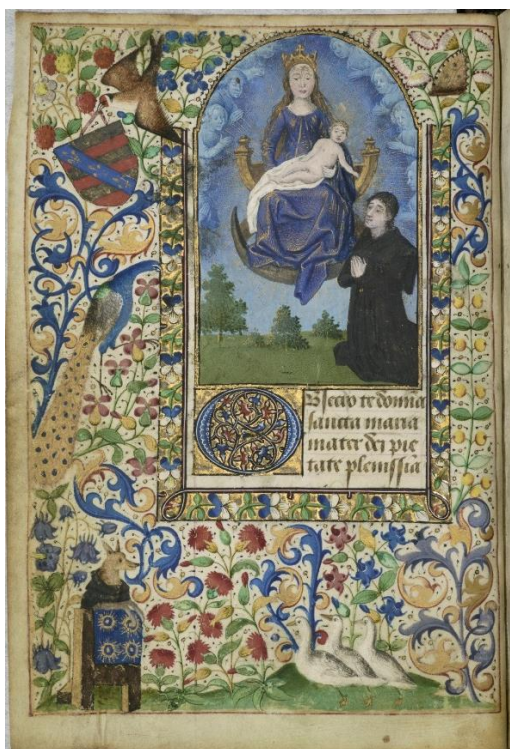 Obsecro te domina
sancta maria
mater dei pie
tate plenissīa